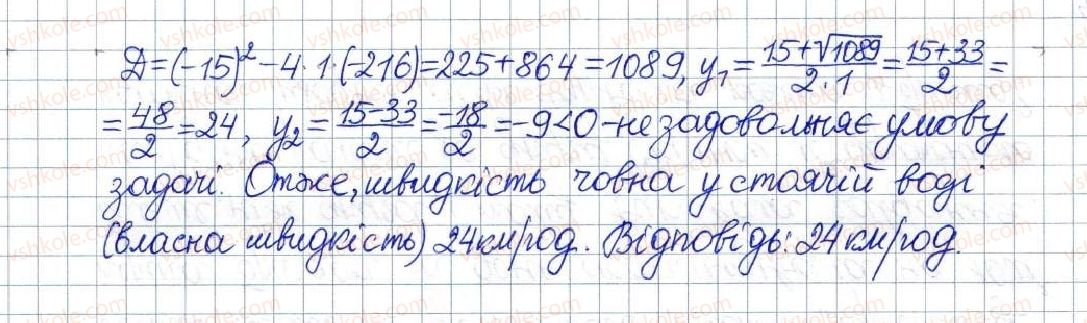 Д=(-15)²-4·1·(-216)=225+864=1089, y₁=(15+√1089)/(2·1)=(15+33)/2=
=48/2=24, y₂=(15-33)/2=-18/2=-9<0-не задовольняє умову
задачі. Отже, швидкість човна у стоячій воді
(власна швидкість) 24км/год. Відповідь: 24км/год.